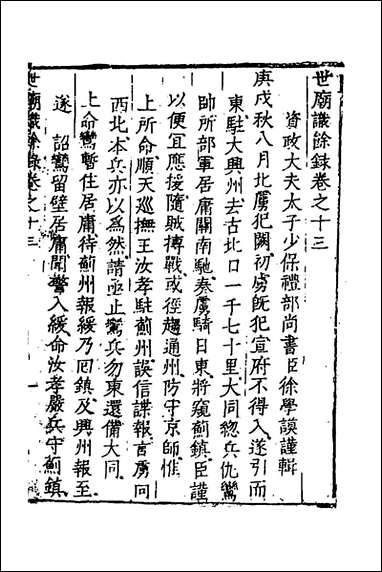 世廟識餘録卷之十三
資政大夫太子少保禮部尚書臣徐學謨謹輯
庚戌秋八月北虜犯闕初虜旣犯宣府不得入遂引而
東駐大興州去古北口一千七十里大同緫兵仇鸞
帥所部軍居庸關南馳奏虜騎日東將窺薊鎮臣謹
以便宜應援隨賊搏戰或徑趨通州防守京師惟
上所命順天巡撫王汝孝駐薊州誤信諜報言虜向
西北本兵亦以為然請亟止鸞兵勿東還備大同
上命鸞暫住居庸待薊州報緩乃囘鎮及興州報至
遂 詔鸞留壁居庸聞警入緩命汝孝嚴兵守薊鎮
世廟識餘録卷之十三
一